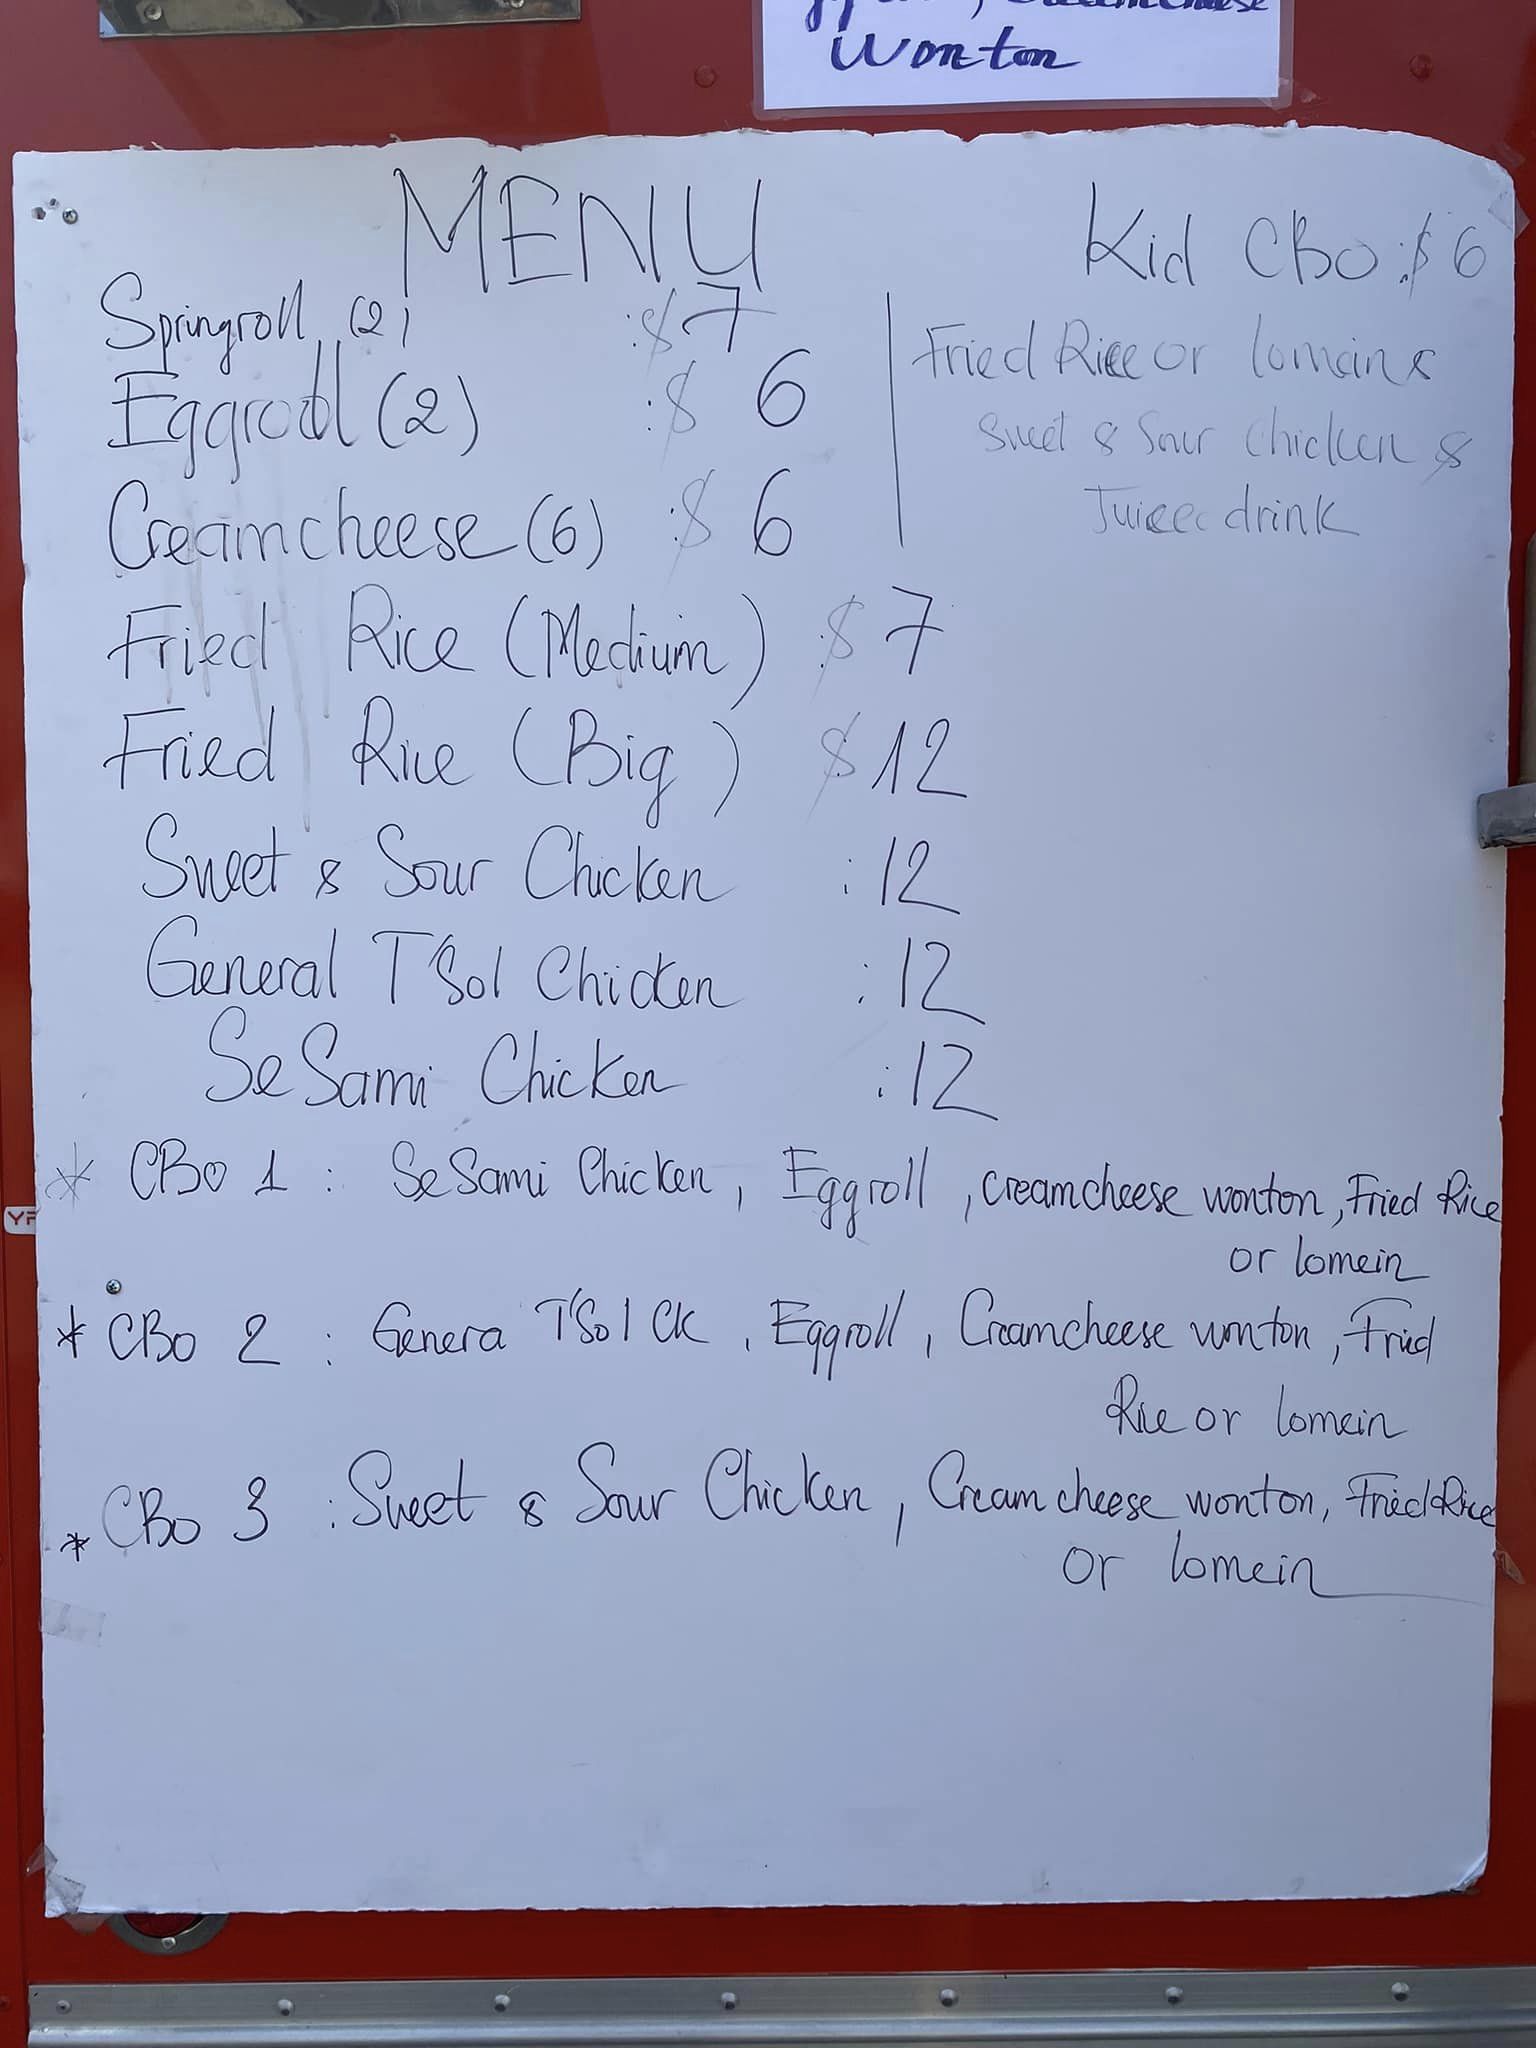 Wonton
MENU
Springroll (2) :$ 7
Eggroll (2) :$ 6
Creamcheese (6) :$ 6
Fried Rice (Medium) :$ 7
Fried Rice (Big) $ 12
Sweet & Sour Chicken : 12
General T'Sol Chicken : 12
SeSami Chicken : 12
Kid CBO :$ 6
Fried Rice or lomein &
Sweet & Sour Chicken &
Juice drink
* CBO 1 : SeSami Chicken, Eggroll, creamcheese wonton, Fried Rice
or lomein
* CBO 2 : Genera T'Sol CK, Eggroll, Creamcheese wonton, Fried
Rice or lomein
* CBO 3 : Sweet & Sour Chicken, Creamcheese wonton, Fried Rice
or lomein